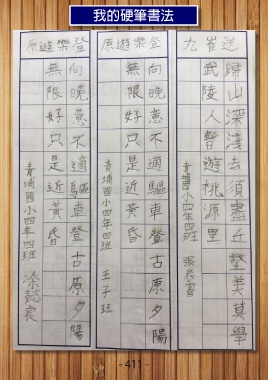 我的硬筆書法
送崔九
歸山深淺去須盡丘壑美莫學
武陵人暫遊桃源里
青埔國小四年四班
登樂遊原
向晚意不適驅車登古原夕陽
無限好只是近黃昏
青埔國小四年四班 王子
登樂遊原
向晚意不適驅車登古原夕陽
無限好只是近黃昏
青埔國小四年四班
- 411 -